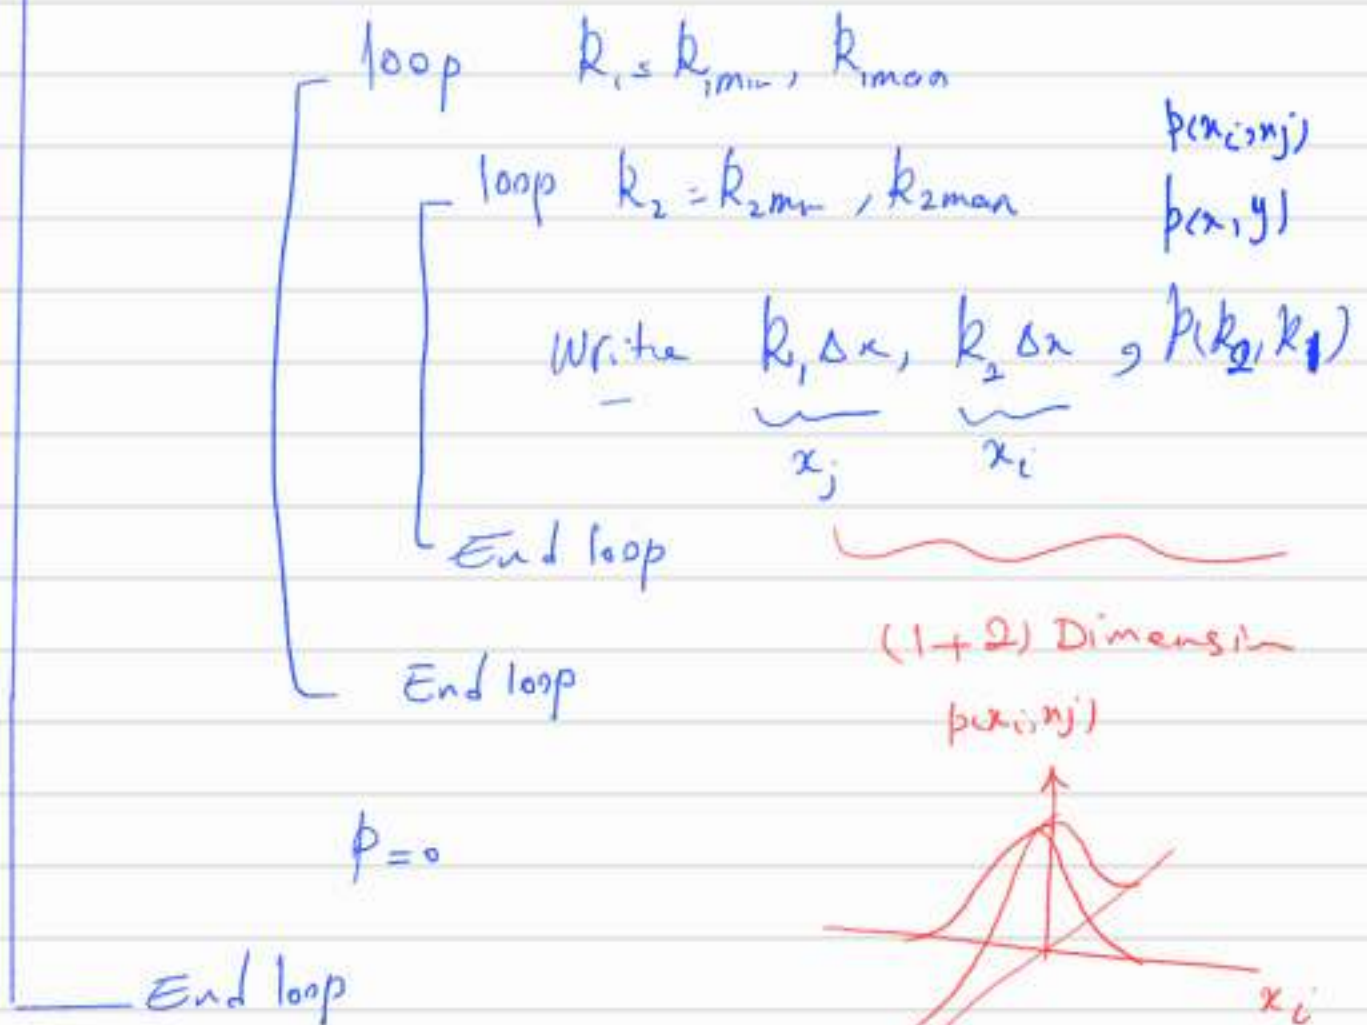 loop k₁ = k₁min, k₁max
p(xi, xj)
loop k₂ = k₂min, k₂max
p(x, y)
Write k₁Δx, k₂Δx, p(k₂, k₁)
xj xi
End loop
(1+2) Dimension
End loop
p(xi, xj)
p=0
End loop
xi